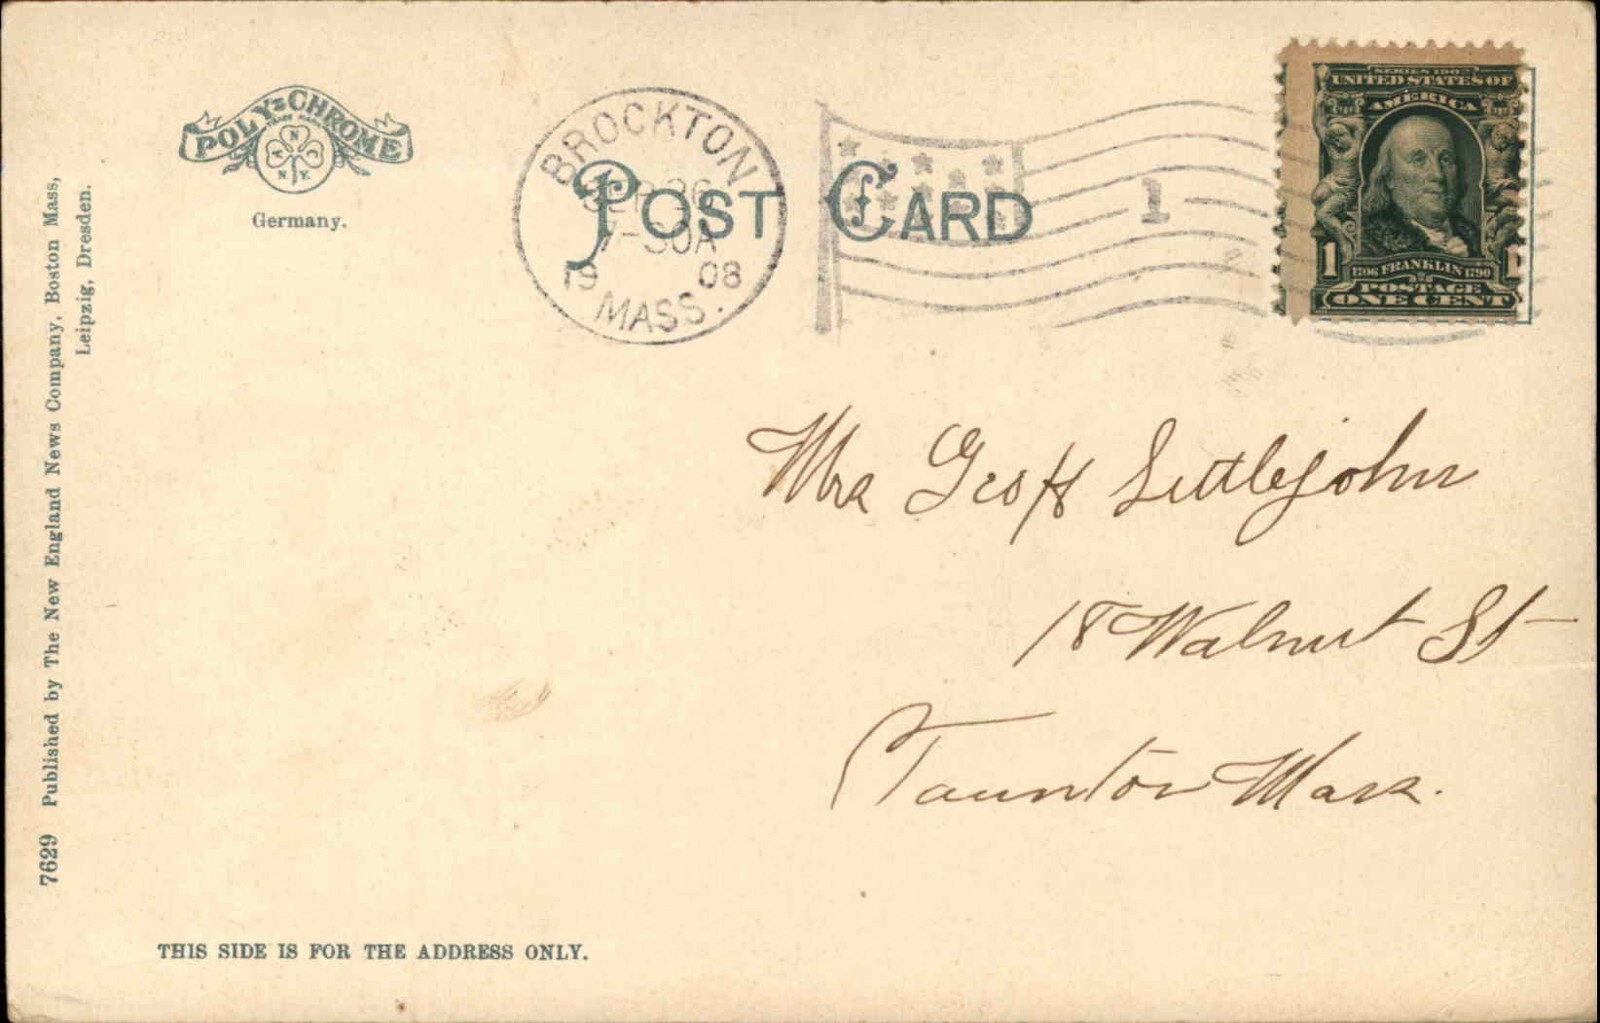 POLY-CHROME
TRADE MARK
N
A N C
N.Y.
Germany.
BROCKTON
SEP 26
7-30A
1908
MASS.
POST CARD
1
SERIES 1902
UNITED STATES OF
AMERICA
1 1
1706 FRANKLIN 1790
POSTAGE
ONE CENT
Mrs Geo H Littlejohn
18 Walnut St
Taunton Mass.
7629 Published by The New England News Company, Boston Mass,
Leipzig, Dresden.
THIS SIDE IS FOR THE ADDRESS ONLY.